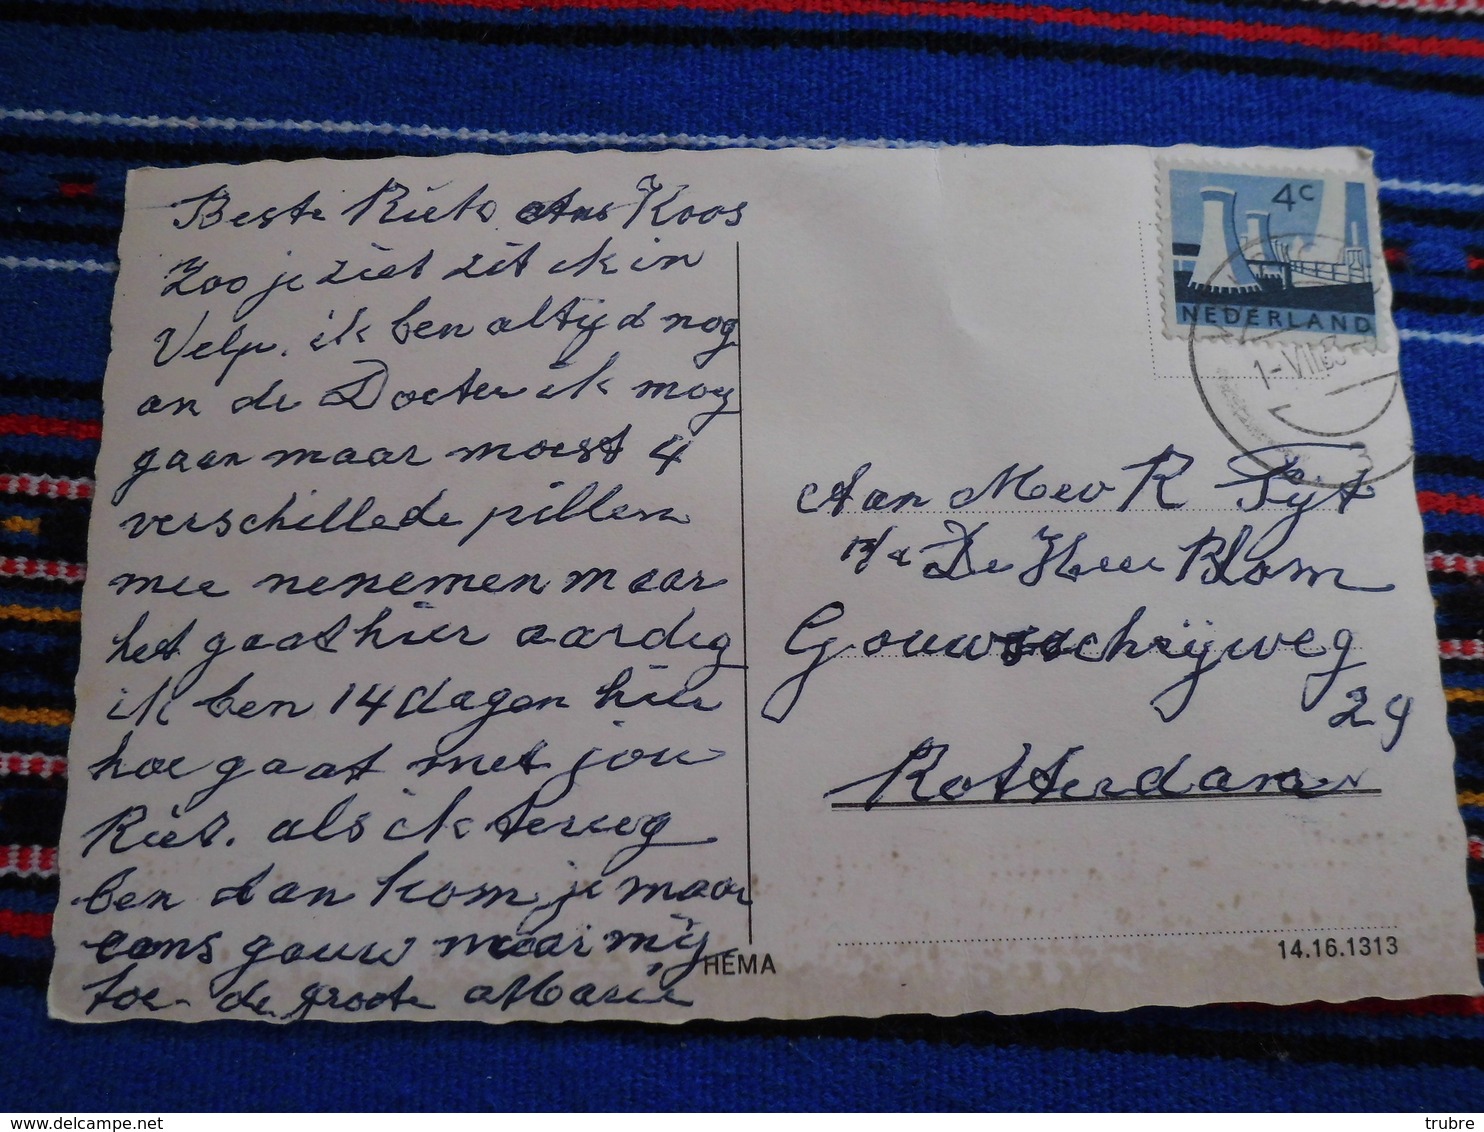 Beste Riets Ans Koos
Zoo je ziet zit ik in
Velp. ik ben altijd nog
an de Docter ik mog
gaan maar moest 4
verschillede pillen
mee nenemen maar
het gaat hier aardig
ik ben 14 dagen hier
hoe gaat met jou
Riet. als ik terug
ben dan kom je maar
eens gouw naar mij
toe - de groote Marie
4c
NEDERLAND
1-VII.63
Aan Mev R Pijt
p/a De Heer Blom
Gouwschrijweg
29
Rotterdam
HEMA
14.16.1313
delcampe.net
trubre